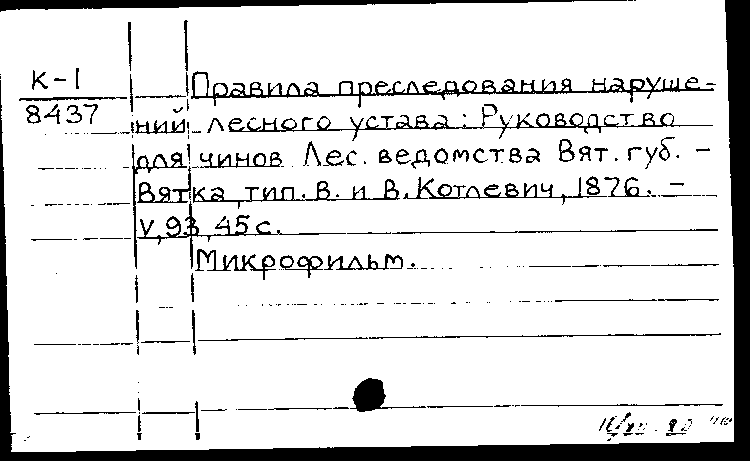 К-1
8437
Правила преследования наруше-
ний лесного устава: Руководство
для чинов Лес. ведомства Вят. губ. -
Вятка, тип. В. и В. Котлевич, 1876. -
V, 93, 45 с.
Микрофильм.